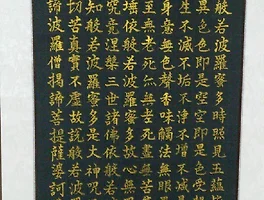 般若波羅蜜多時照見五蘊
異色色即是空空即是色受想
生不滅不垢不淨不增不減是
身意無色聲香味觸法無眼
至無老死亦無老死盡無苦集
埵依般若波羅蜜多故心無
究竟涅槃三世諸佛依般若
知般若波羅蜜多是大神咒
切苦真實不虛故說般若波
諦波羅僧揭諦菩提薩婆訶